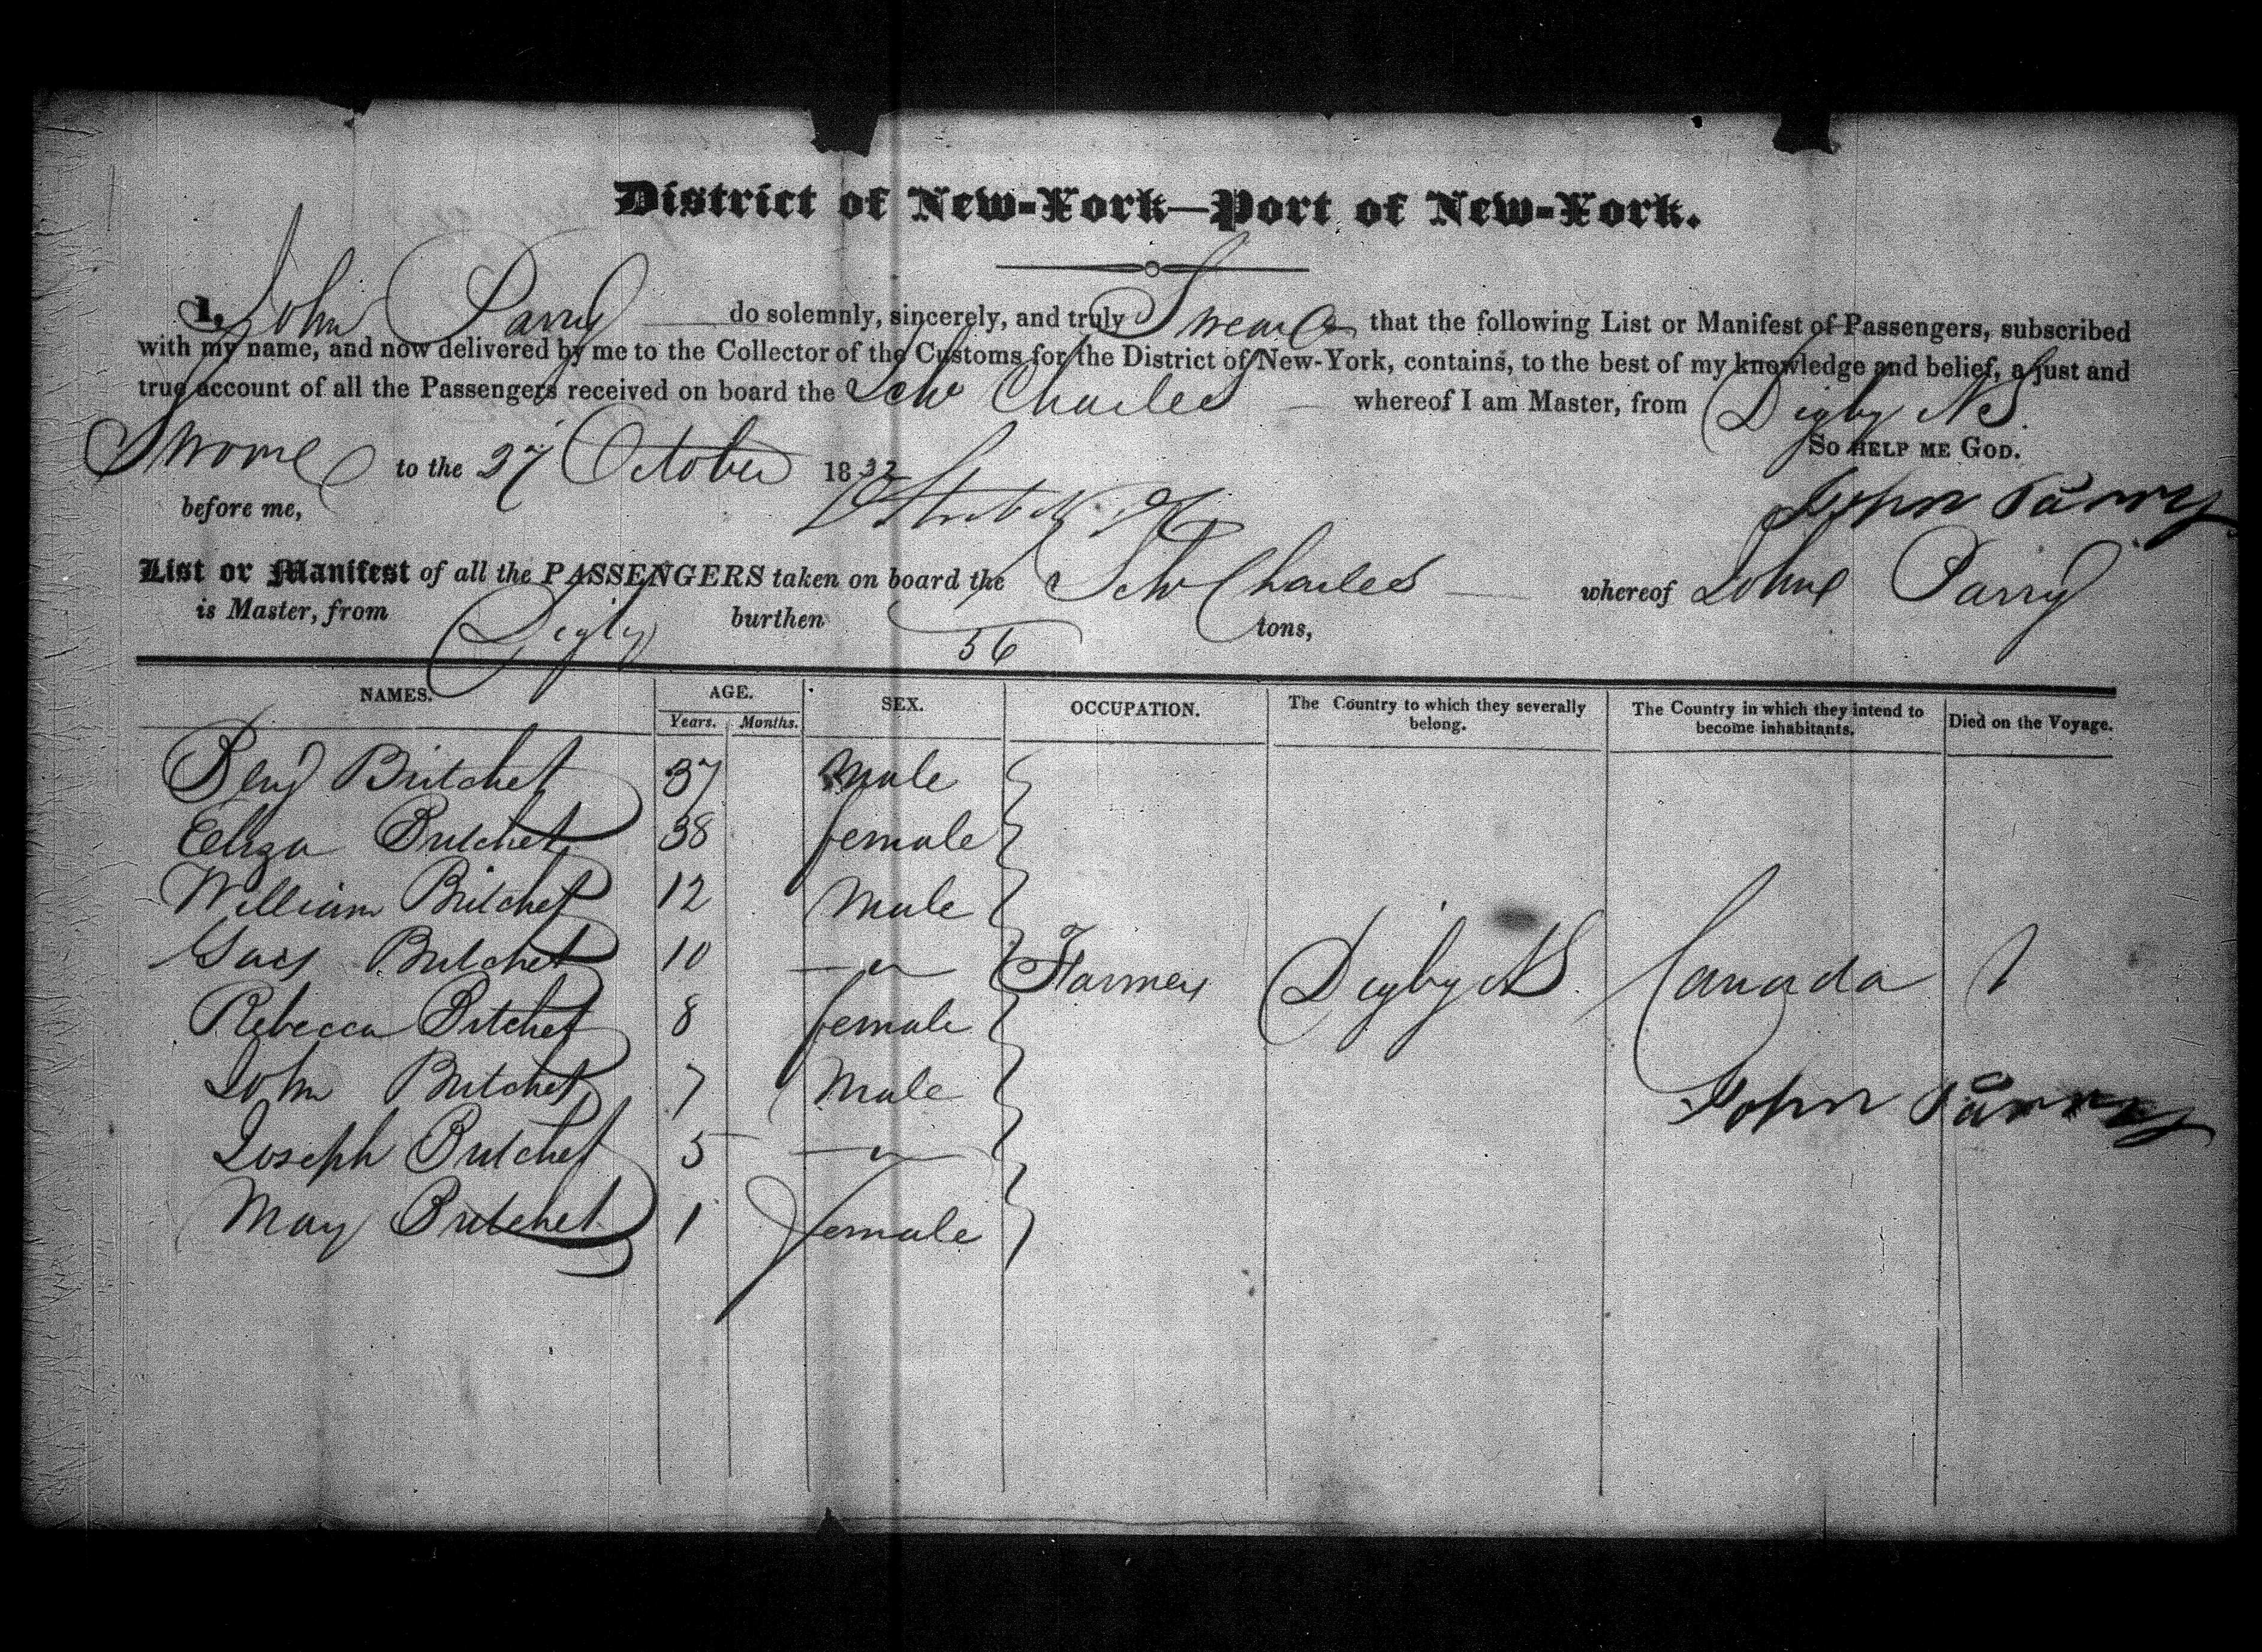 District of New-York—Port of New-York.
I, John Parry do solemnly, sincerely, and truly Swear that the following List or Manifest of Passengers, subscribed
with my name, and now delivered by me to the Collector of the Customs for the District of New-York, contains, to the best of my knowledge and belief, a just and
true account of all the Passengers received on board the Schr Charles whereof I am Master, from Digby NS
Sworne to the 27 October 1832 So help me God.
before me, John Parry
List or Manifest of all the PASSENGERS taken on board the Schr Charles whereof John Parry
is Master, from Digby burthen 56 tons,
NAMES. AGE. SEX. OCCUPATION. The Country to which they severally belong. The Country in which they intend to become inhabitants. Died on the Voyage.
Years. Months.
Benj Britchet 37 Male
Eliza Britchet 38 female
William Britchet 12 Male
Britchet 10 — " —
Farmer Digby NS Canada
Rebecca Britchet 8 female
John Britchet 7 Male
John Parry
Joseph Britchet 5 — " —
May Britchet 1 female